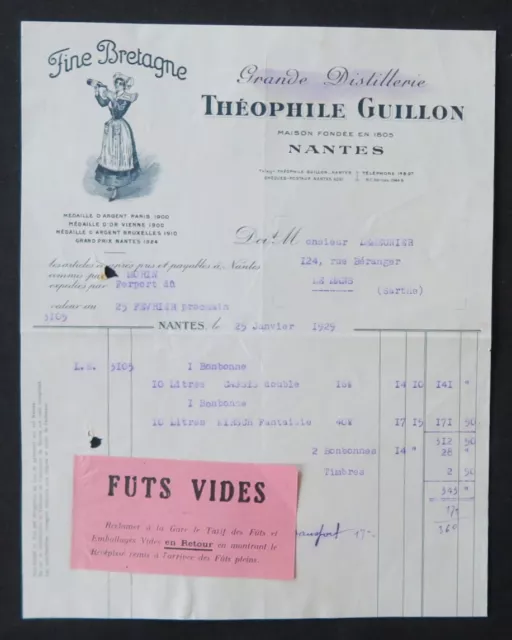 Fine Bretagne
Grande Distillerie
THÉOPHILE GUILLON
MAISON FONDÉE EN 1805
NANTES
THÉOPHILE GUILLON, NANTES
TÉLÉPHONE
CHÈQUES-POSTAUX NANTES
MÉDAILLE D'ARGENT PARIS 1900
MÉDAILLE D'OR VIENNE 1900
MÉDAILLE D'ARGENT BRUXELLES 1910
GRAND PRIX NANTES 1924
Doit Monsieur
124, rue Béranger
LE MANS
(Sarthe)
les articles ci-après pris et payables à Nantes
connus par
expédiés par
valeur au 25 FEVRIER prochain
5105
NANTES, le 25 Janvier 1929
5105 1 Bonbonne
10 Litres CASSIS double 15° 14 10 141 "
1 Bonbonne
10 Litres KIRSCH Fantaisie 40° 17 15 171 50
312 50
2 Bonbonnes 14 " 28 "
Timbres 2 50
343 "
transport 17.- 17
360
FUTS VIDES
Réclamer à la Gare le Tarif des Fûts et
Emballages Vides en Retour en montrant le
Récépissé remis à l'arrivée des Fûts pleins.